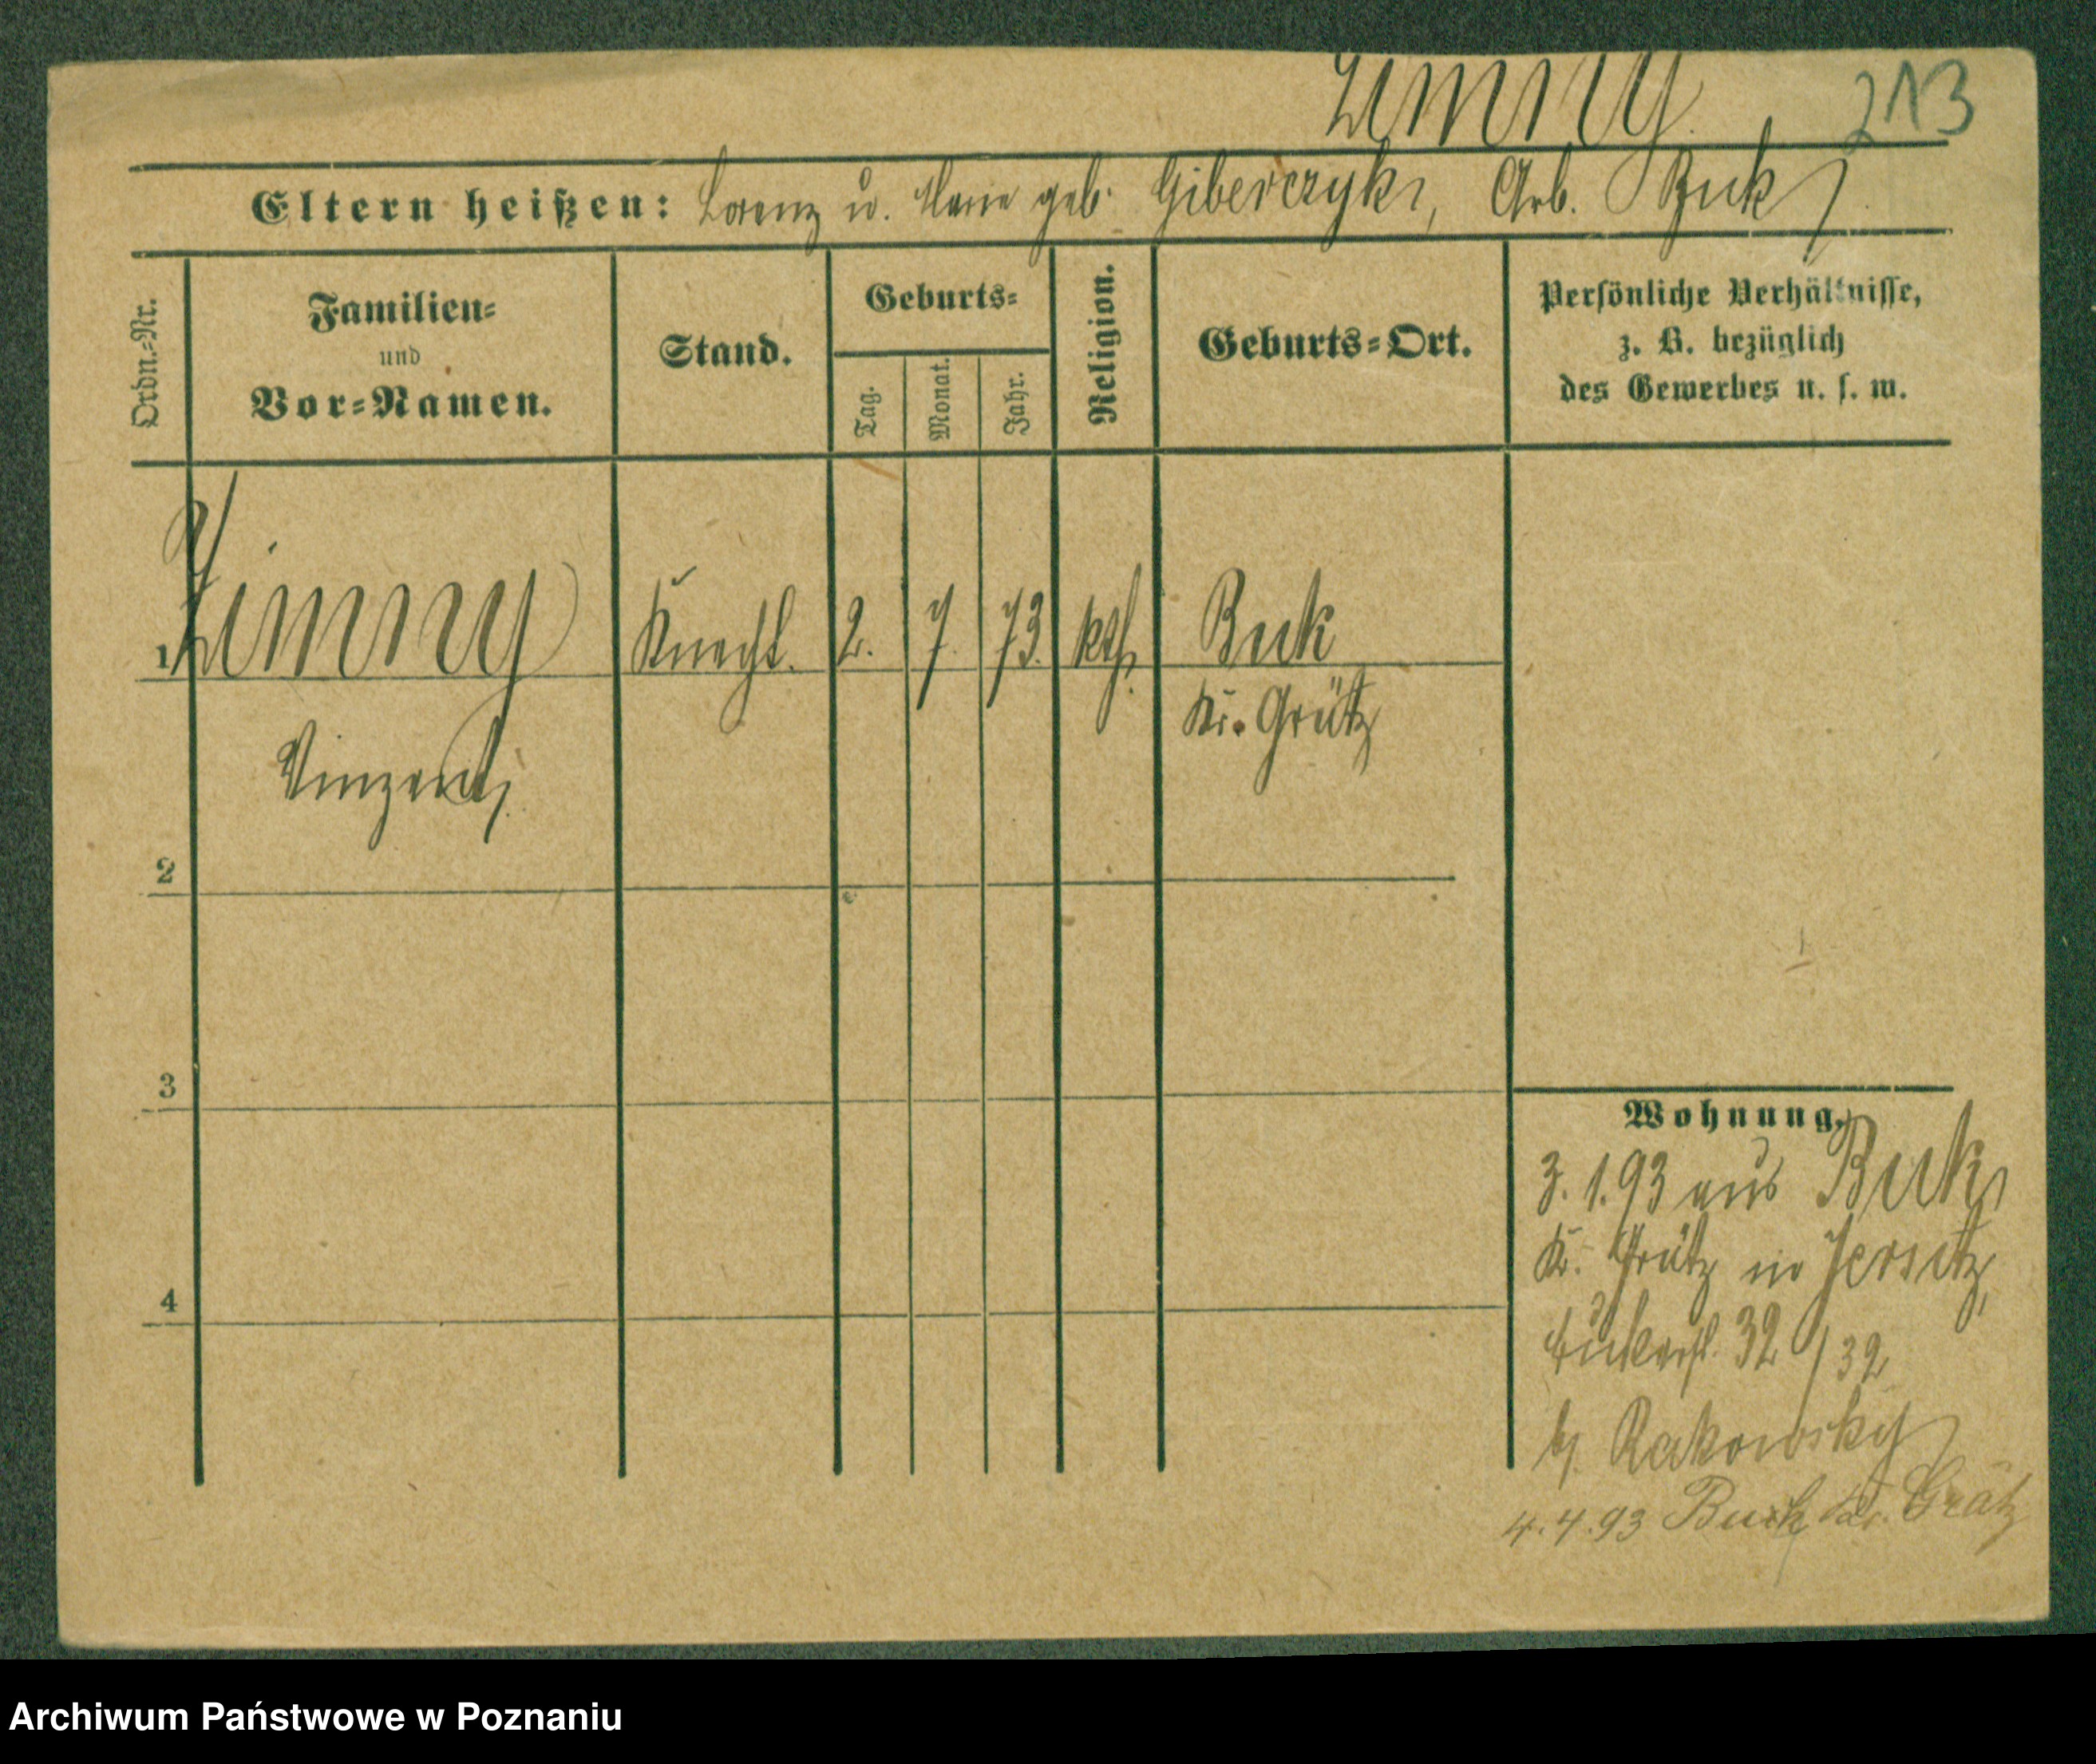 Zimny 213
Eltern heißen: Lorenz u. Marie geb. Giberczyk, Arb. Buk
Ordn.-Nr.
Familien-
und
Vor-Namen.
Stand.
Geburts-
Tag.
Monat.
Jahr.
Religion.
Geburts-Ort.
Persönliche Verhältnisse,
z. B. bezüglich
des Gewerbes u. s. w.
1 Zimny Knecht. 2. 7. 73. kth. Buk
Kr. Grätz
Vinzent
2
3
4
Wohnung.
3. 1. 93 aus Buk,
Kr. Grätz in Jersitz,
32/32
b. Rakowsky
4. 4. 93 Buk Kr. Grätz
Archiwum Państwowe w Poznaniu